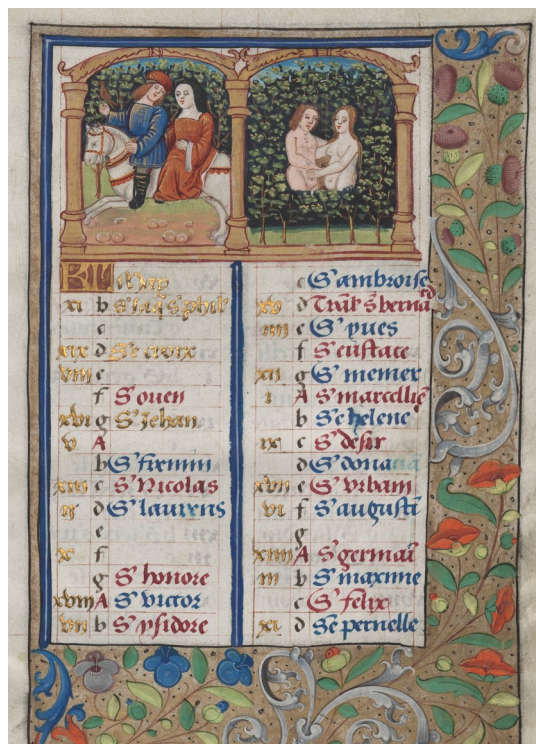 KL May
xi b S' Jaq̃ S' phil'
c
xix d Se croix
viii e
f S' ouen
xvi g S' Jehan
v A
b S' firmin
xiii c S' Nicolas
ii d S' laurens
e
x f
g S' honore
xviii A S' victor
vii b S' ysidore
c S' ambroise
xv d Trãs. s' bernãd
iiii e S' yues
f S' eustace
xii g S' memer
i A S' marcellie
b Se helene
ix c S' desir
d S' donacia
xvii e S' Vrbam
vi f S' augusti
g
xiiii A S' germaĩ
iii b S' maxime
c S' felix
xi d Se pernelle